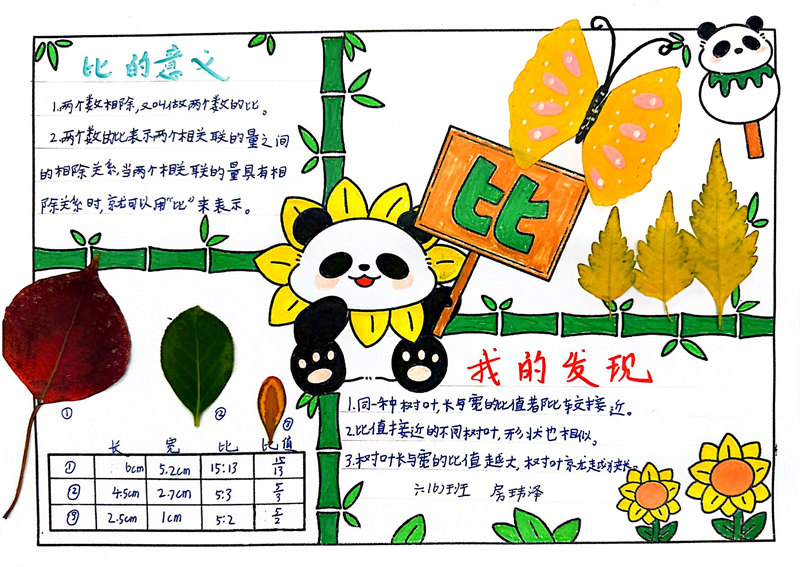 比的意义
1.两个数相除,又叫做两个数的比。
2.两个数的比表示两个相关联的量之间
的相除关系,当两个相关联的量具有相
除关系时,就可以用“比”来表示。
比
① ② ③
长 宽 比 比值
① 6cm 5.2cm 15:13 15/13
② 4.5cm 2.7cm 5:3 5/3
③ 2.5cm 1cm 5:2 5/2
我的发现
1.同一种树叶,长与宽的比值都比较接近。
2.比值接近的不同树叶,形状也相似。
3.树叶长与宽的比值越大,树叶就越狭长。
六(6)班 房玮泽